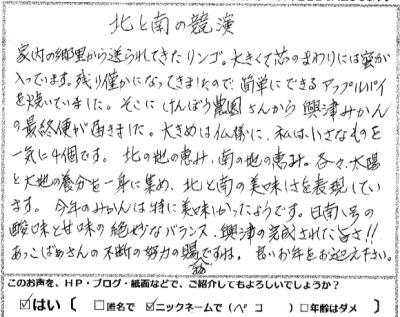 北と南の競演
家内の郷里から送られてきたリンゴ。大きくて芯のまわりには蜜が
入っています。残り僅かになってきましたので簡単にできるアップルパイ
を焼いていました。そこにけんぼう農園さんから興津みかん
の最終便が届きました。大きめは仏様に、私は小さなものを
一気に4個です。北の地の恵み、南の地の恵み。各々、太陽
と大地の養分を一身に集め、北と南の美味しさを表現してい
ます。今年のみかんは特に美味しかったようです。日南1号の
酸味と甘味の絶妙なバランス、興津の完成された旨さ!!
あっこばぁさんの不断の努力の賜ですね。良いお年をお迎え下さい。
このお声を、HP・ブログ・紙面などで、ご紹介してもよろしいでしょうか?
☑はい【 □匿名で ☑ニックネームで(ペコ )□年齢はダメ 】